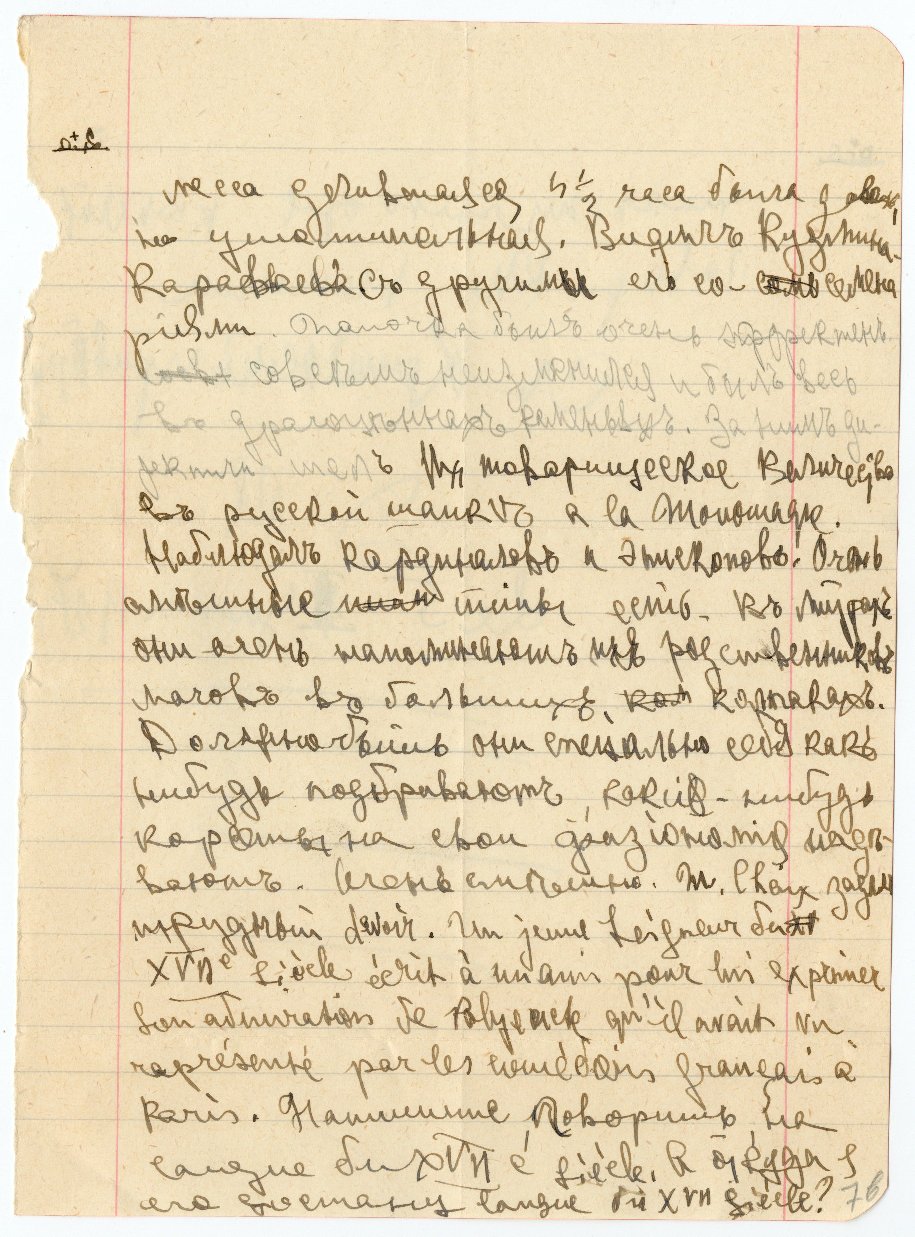 месса длившаяся 4 1/2 часа была доволь,
но утомительная. Видѣлъ Кузьмина-
Караваева съ другими его со- семина
ріями. Папочка былъ очень эффектенъ
совсѣмъ неизмѣнился и былъ весь
въ драгоцѣнныхъ каменьяхъ. За нимъ ди-
шелъ Ихъ товарищеское Величество
въ русской шапкѣ à la Мономахъ.
Наблюдалъ кардиналовъ и Эпископовъ! Очень
смѣшные типы есть. Къ митрахъ
они очень напоминаютъ мнѣ родственниковъ
въ большихъ колпакахъ.
Должно быть они спеціально себя какъ
нибудь подбриваютъ, какія-нибудь
на свои физіономіи надѣ-
ваютъ. Очень смѣшно. M. Chaix задалъ
трудный devoir. Un jeune Seigneur du
XVII e siècle écrit à un ami pour lui exprimer
son admiration de Polyeucte qu'il avait vu
représenté par les comédiens français à
Paris. Напишите, говоритъ, на
langue du XVII e siècle. А откуда я
его достану langue du XVII siècle?
76